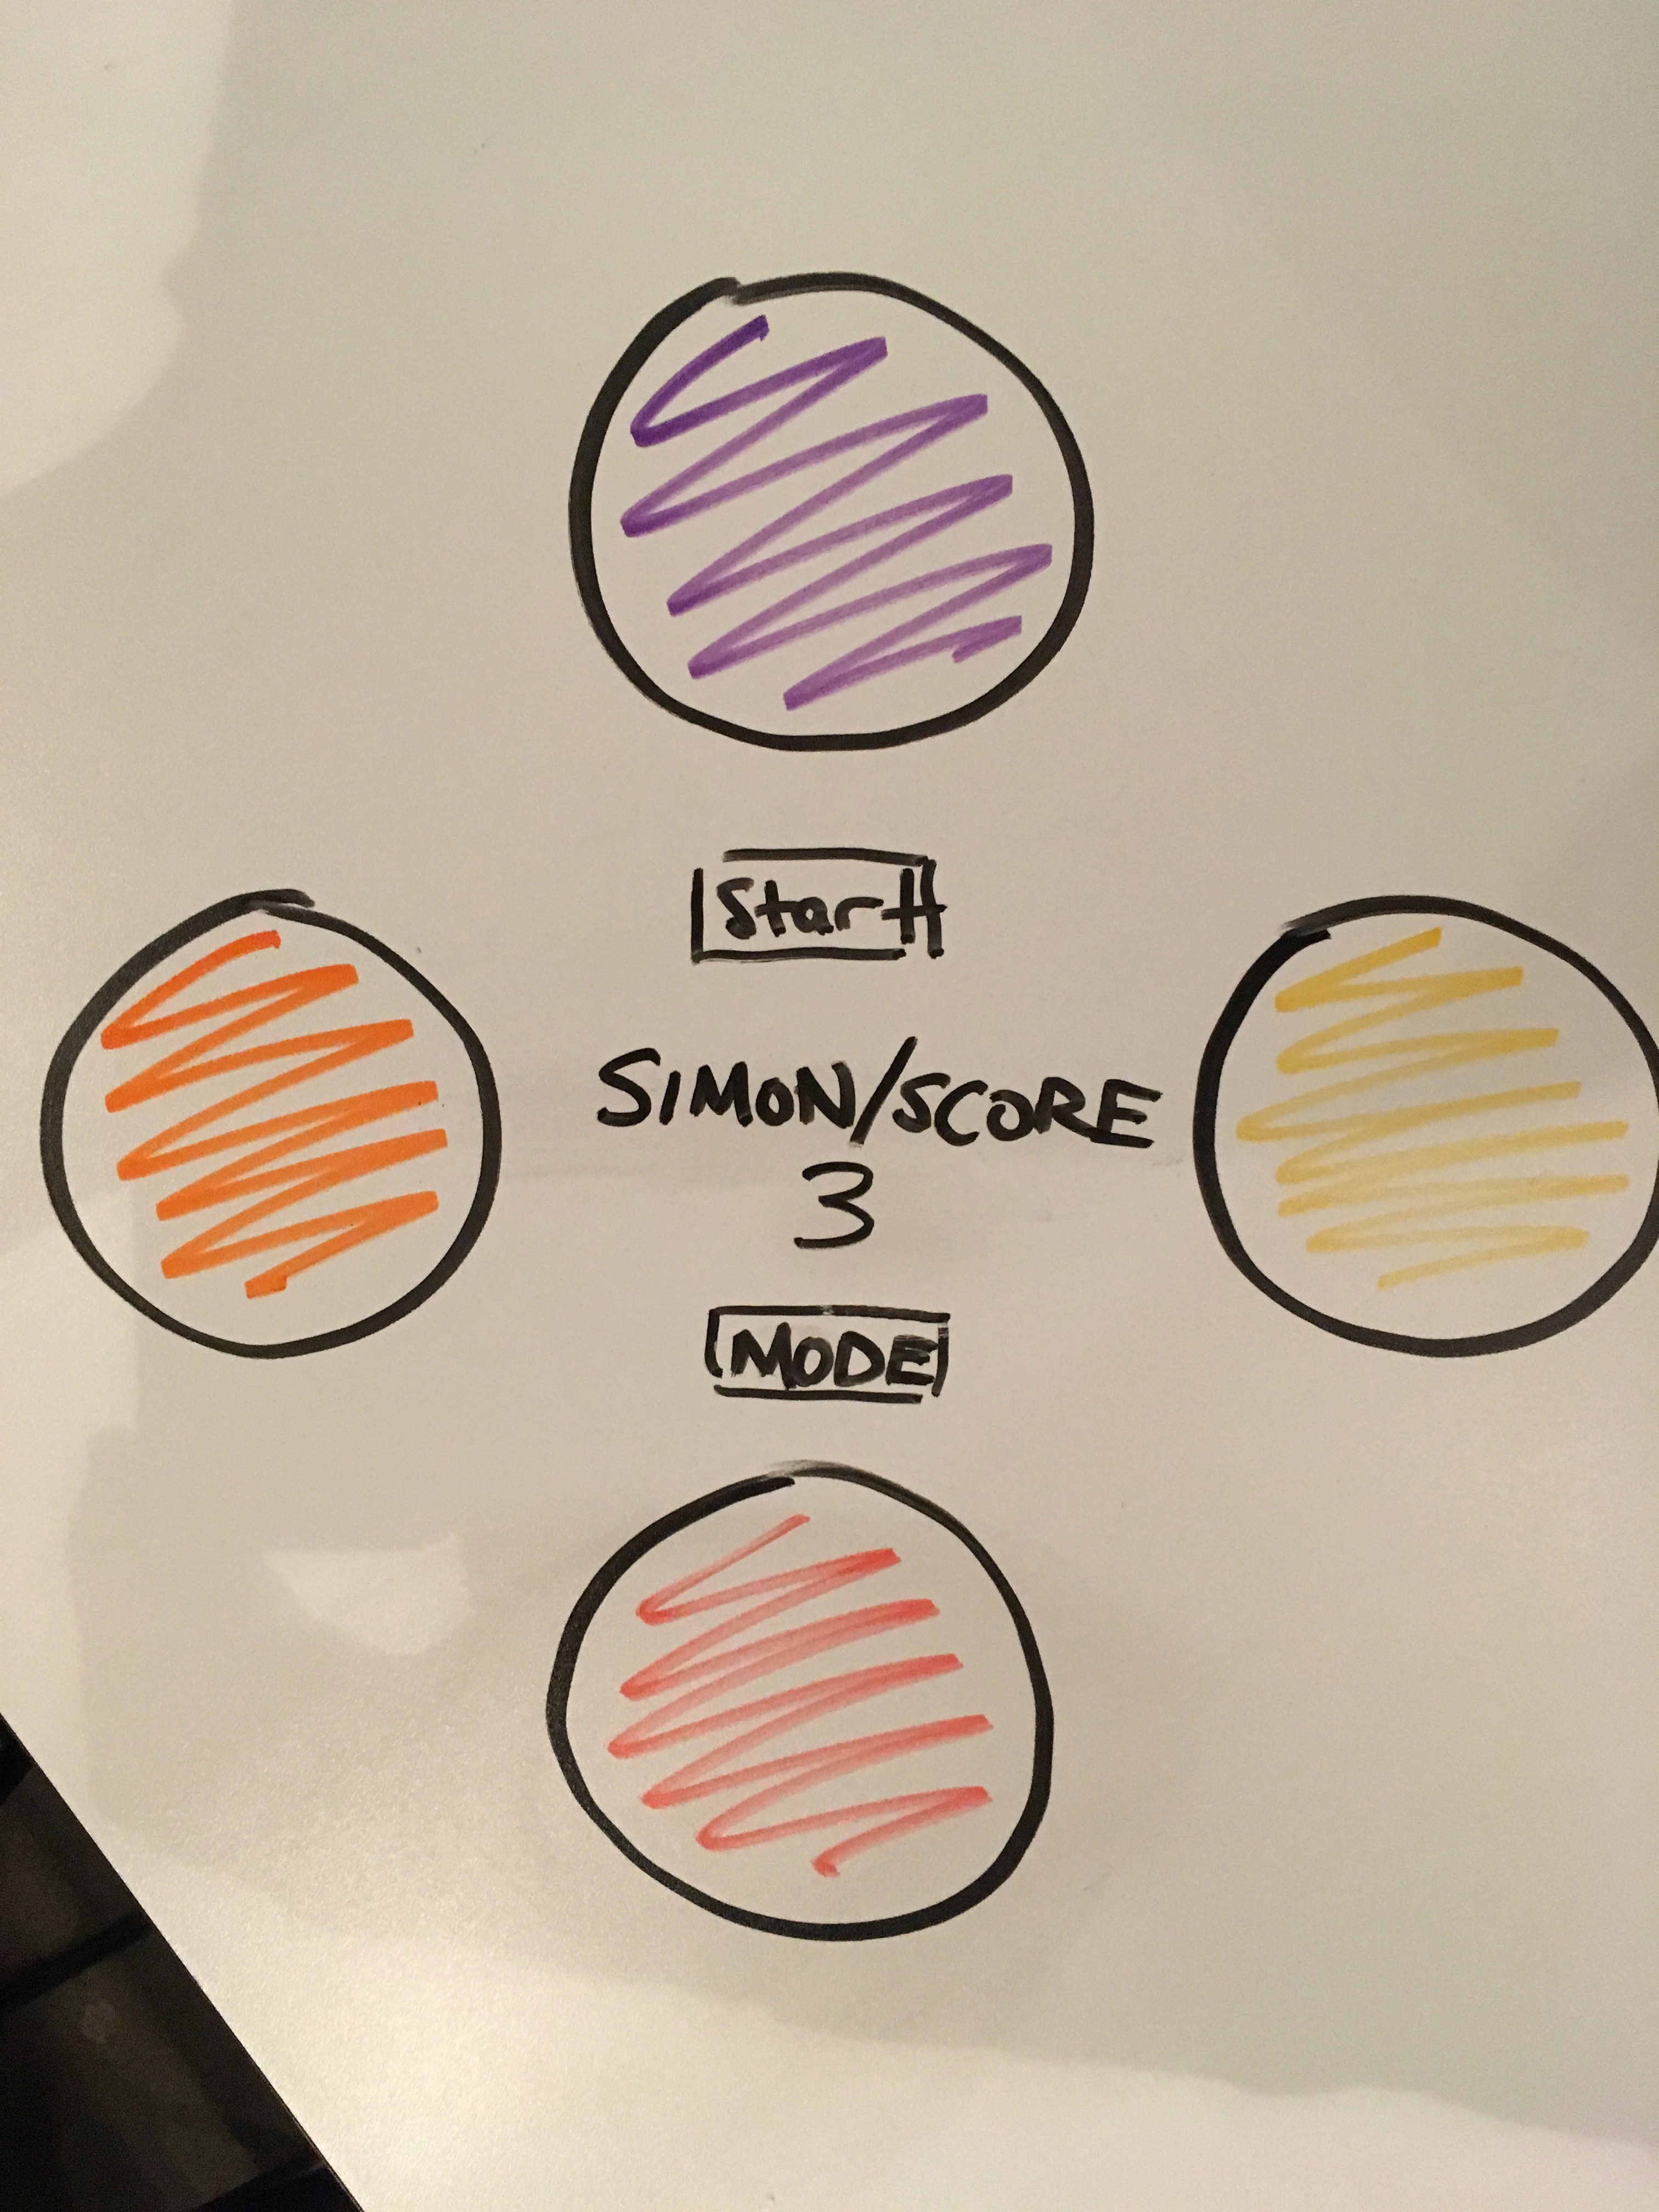 Start
SIMON/SCORE
3
MODE